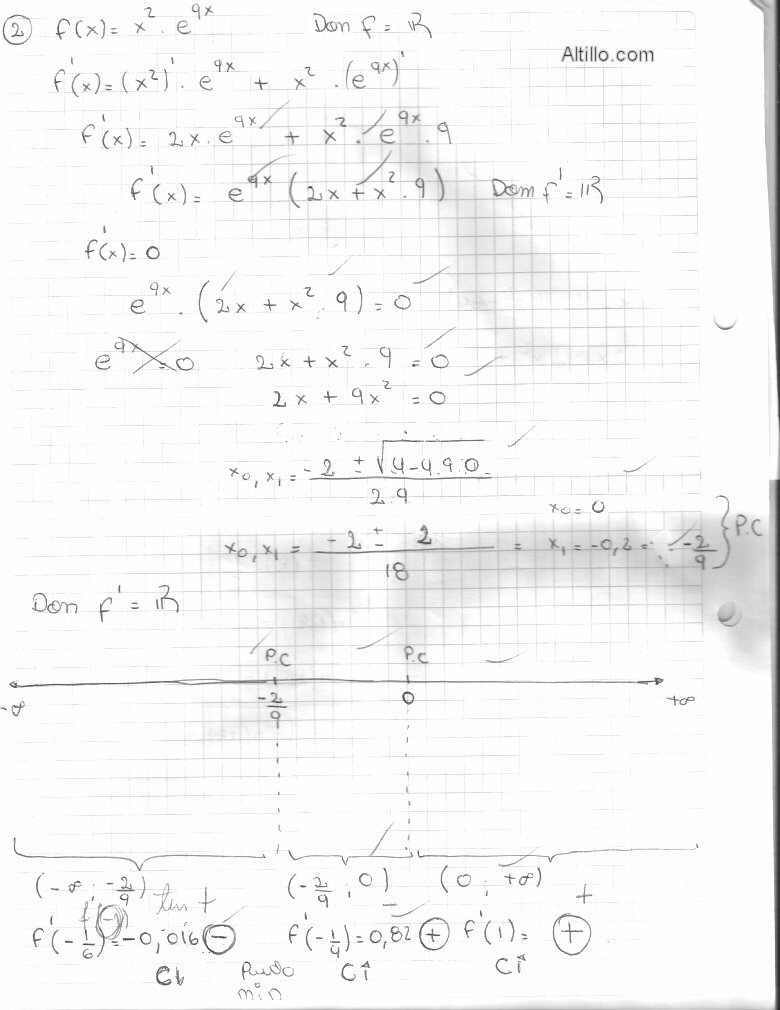 ② f(x) = x² · e^9x Dom f = ℝ
Altillo.com
f'(x) = (x²)' · e^9x + x² · (e^9x)'
f'(x) = 2x · e^9x + x² · e^9x · 9
f'(x) = e^9x (2x + x² · 9) Dom f' = ℝ
f'(x) = 0
e^9x · (2x + x² · 9) = 0
e^9x = 0 2x + x² · 9 = 0
2x + 9x² = 0
x₀, x₁ = (-2 ± √(4-4·9·0)) / (2·9)
x₀ = 0
x₀, x₁ = (-2 ± 2) / 18 = x₁ = -0,2 = -2/9 } P.C
Dom f' = ℝ
P.C P.C
-∞ -2/9 0 +∞
(-∞ ; -2/9) (-2/9 ; 0) (0 ; +∞)
+
f'(-1/6) = -0,016 ⊖ f'(-1/4) = 0,82 ⊕ f'(1) = ⊕
C↓ Punto C↑ C↑
min